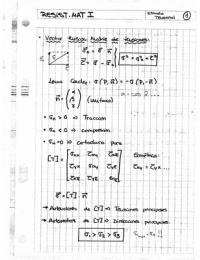 RESIST. MAT I
Estado Tensional
1
• Vector tensión. Matriz de tensiones:
σn = σ · n
σ² = σn² + τ²
Lema Cauchy: σ(P, n) = -σ(P, -n)
n = (α β γ) (unitario)
• σn > 0 → Tracción
• σn < 0 → compresión
• σn = 0 → Cortadura pura
[T] =
σxx τxy τxz
τyx σyy τyz
τzx τzy σzz
Simétrica:
τxy = τyx ...
σ = [T] · n
→ Autovalores de [T] → Tensiones principales
→ Autovectores de [T] → Direcciones principales
σ1 > σ2 > σ3